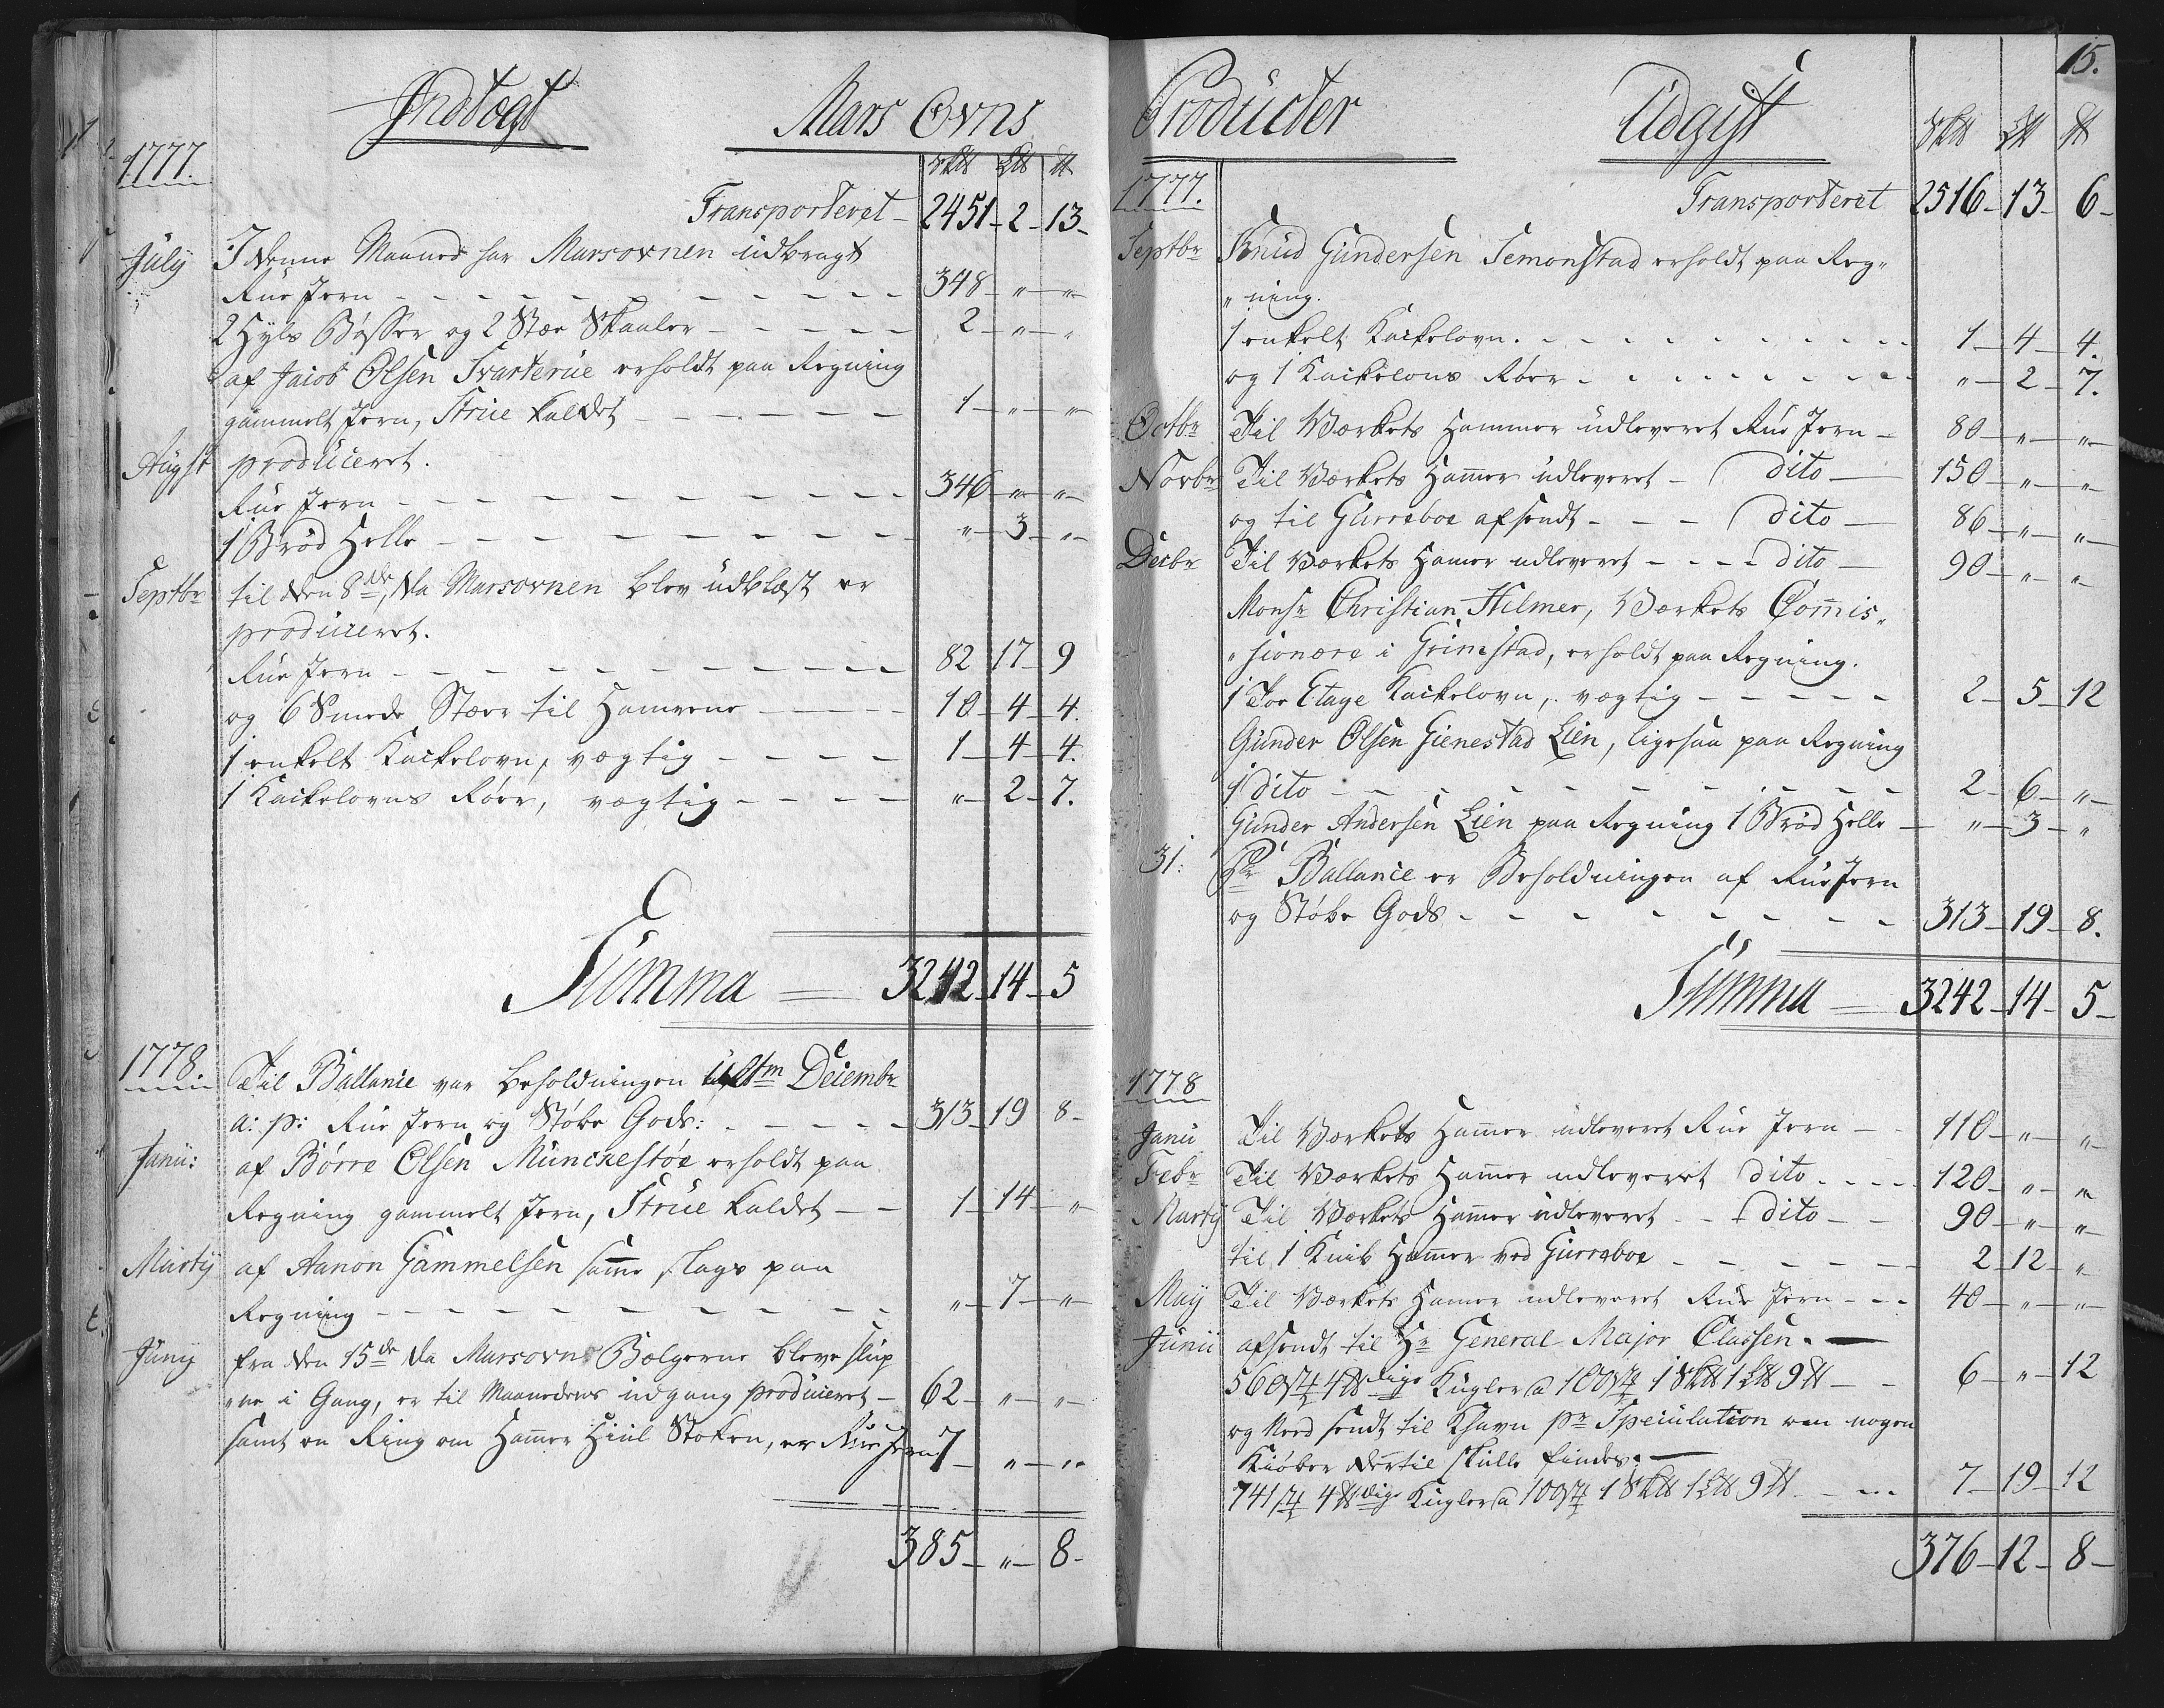 Indtægt Mars Ovns
1777.
S℔ L℔ ℔
Transporteret 2451 - 2 - 13 -
July I denne Maaned har Marsovnen udbragt
Rue Jern 348 - " - "
2 Hyls Bøsser og 2 Stær Skaaler 2 - " - "
af Jacob Olsen Svarterue erholdt paa Regning
gammelt Jern, Strue kaldet 1 - " - "
Augst produceret.
Rue Jern 346 - " - "
1 Brød Helle " - 3 - "
Septbr til den 8de, da Marsovnen blev udblæst er
produceret.
Rue Jern 82 17 - 9
og 6 Smede Stær til Hamrene 10 - 4 - 4.
1 enkelt Kackelovn, vægtig 1 - 4 - 4.
1 Kackelovns Rør, vægtig " - 2 - 7.
Summa = 3242 - 14 - 5
1778. Til Ballance var beholdningen ultm Decembr
a: p: Rue Jern og Støbe Gods: 313 - 19 8 -
Janu: af Børre Olsen Munckestøe erholdt paa
Regning gammelt Jern, Strue kaldet 1 - 14 - "
Marty af Aanon Gammelsen samme slags paa
Regning " - 7 - "
Juny fra den 15de da Marsovns Bælgerne bleve slup
" ne i Gang, er til Maanedens udgang produceret - 62 - " - "
samt en Ring om Hammer Hiul Stoken, er Rue Jern 7 - " - "
385 - " - 8 -
15.
Producter Udgift
S℔ L℔ ℔
1777.
Transporteret 2516 - 13 - 6 -
Septbr Knud Gundersen Temonstad erholdt paa Reg "
" ning.
1 enkelt Kackelovn. 1 - 4 - 4.
og 1 Kackelovns Røer " - 2 - 7.
Octbr Til Værkets Hammer udleveret Rue Jern - 80 - " - "
Novbr Til Værkets Hamer udleveret - dito - 150 - " - "
og til Gurreboe afsendt - - - dito - 86 - " - "
Decbr Til Værkets Hamer udleveret - - - dito - 90 - " - "
Monsr Christian Hilmer, Værkets Comis "
" sionære i Grimstad, erholdt paa Regning.
1 Toe Etage Kackelovn, vægtig 2 - 5 - 12
Gunder Olsen Gienestad Lien, ligesaa paa Regning
1 dito 2 - 6 - "
Gunder Andersen Lien paa Regning 1 Brød Helle - " - 3 - "
31: Pr Ballance er Beholdningen af Rue Jern
og Støbe Gods 313 - 19 - 8.
Summa = 3242 - 14 - 5 -
1778
Janu Til Værkets Hamer udleveret Rue Jern 110 - " - "
Febr Til Værkets Hamer udleveret dito 120 - " - "
Marty Til Værkets Hamer udleveret - - dito - 90 - " - "
til 1 Knib Hamer ved Gurreboe 2 12 - "
May Til Værkets Hamer udleveret Rue Jern 40 - " - "
Junii afsendt til Hr General Major Classen.
560 st 4 ℔dige Kugler a 100 st 1 S℔ 1 L℔ 9 ℔ 6 - " - 12
og Ned sendt til Khavn pr Speculation om nogen
Kiøber dertil skulle findes.
741 st 4 ℔dige Kugler a 100 st 1 S℔ 1 L℔ 9 ℔ 7 - 19 - 12
376 - 12 - 8 -